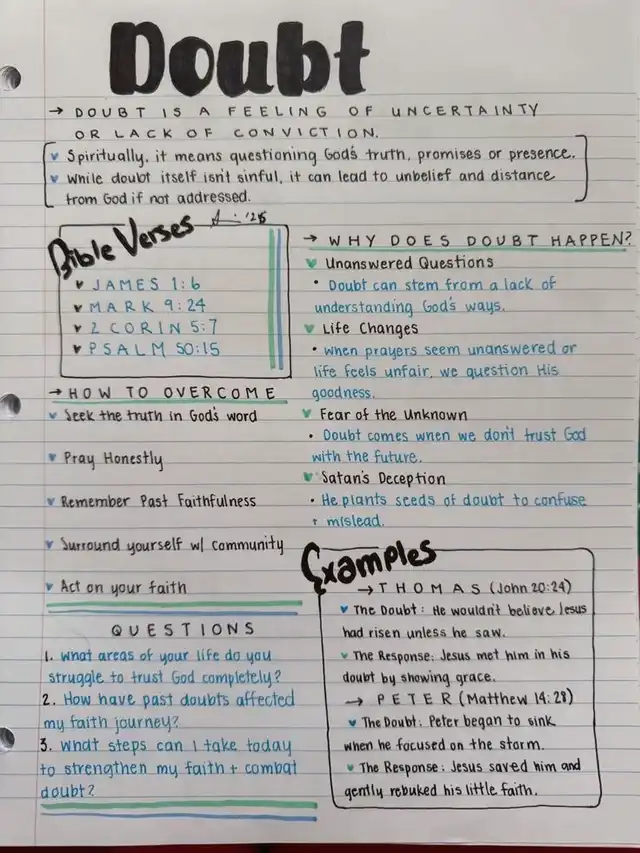 Doubt
→ DOUBT IS A FEELING OF UNCERTAINTY
OR LACK OF CONVICTION.
Spiritually, it means questioning God's truth, promises or presence.
While doubt itself isn't sinful, it can lead to unbelief and distance
from God if not addressed.
Bible Verses
'25
JAMES 1:6
MARK 9:24
2 CORIN 5:7
PSALM 50:15
→ HOW TO OVERCOME
Seek the truth in God's word
Pray Honestly
Remember Past Faithfulness
Surround yourself w/ community
Act on your faith
QUESTIONS
1. What areas of your life do you
struggle to trust God completely?
2. How have past doubts affected
my faith journey?
3. What steps can I take today
to strengthen my faith + combat
doubt?
→ WHY DOES DOUBT HAPPEN?
Unanswered Questions
• Doubt can stem from a lack of
understanding God's ways.
Life Changes
• When prayers seem unanswered or
life feels unfair, we question His
goodness.
Fear of the Unknown
• Doubt comes when we don't trust God
with the future.
Satan's Deception
• He plants seeds of doubt to confuse
+ mislead.
Examples
→ THOMAS (John 20:24)
The Doubt: He wouldn't believe Jesus
had risen unless he saw.
The Response: Jesus met him in his
doubt by showing grace.
→ PETER (Matthew 14:28)
The Doubt: Peter began to sink
when he focused on the storm.
The Response: Jesus saved him and
gently rebuked his little faith.